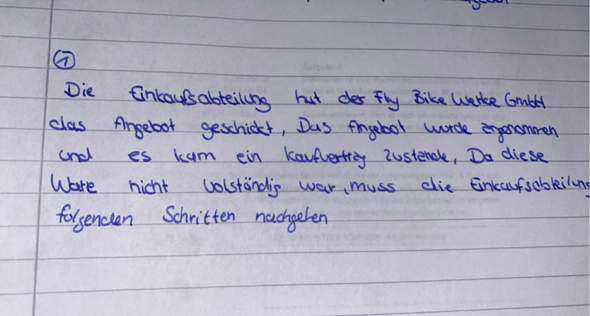 ①
Die Einkaufsabteilung hat der Fly Bike Werke GmbH
das Angebot geschickt, Das Angebot wurde angenommen
und es kam ein Kaufvertrag zustande, Da diese
Ware nicht volständig war, muss die Einkaufsabteilung
folgenden Schritten nachgehen